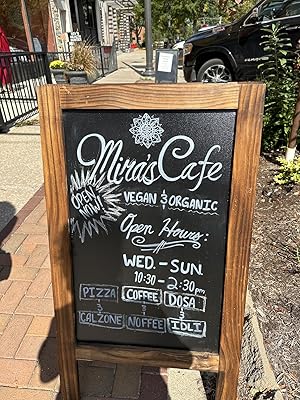 Mira's Cafe
OPEN NOW!
VEGAN & ORGANIC
Open Hours:
WED.-SUN.
10:30-2:30pm
PIZZA COFFEE DOSA
& & &
CALZONE NOFFEE IDLI